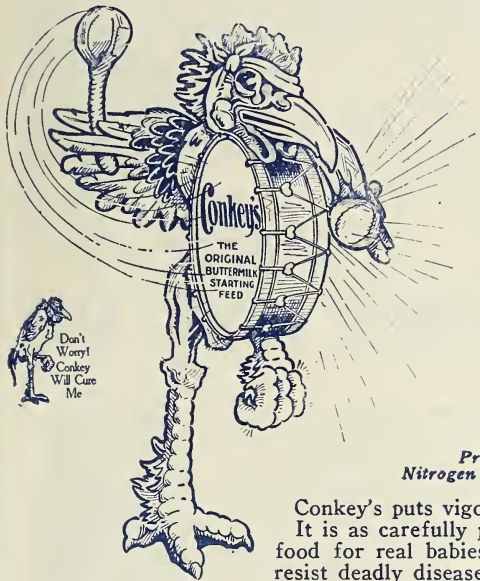 Conkey's
THE
ORIGINAL
BUTTERMILK
STARTING
FEED
Don't
Worry!
Conkey
Will Cure
Me
Pr
Nitrogen
Conkey's puts vigo
It is as carefully p
food for real babies
resist deadly disease